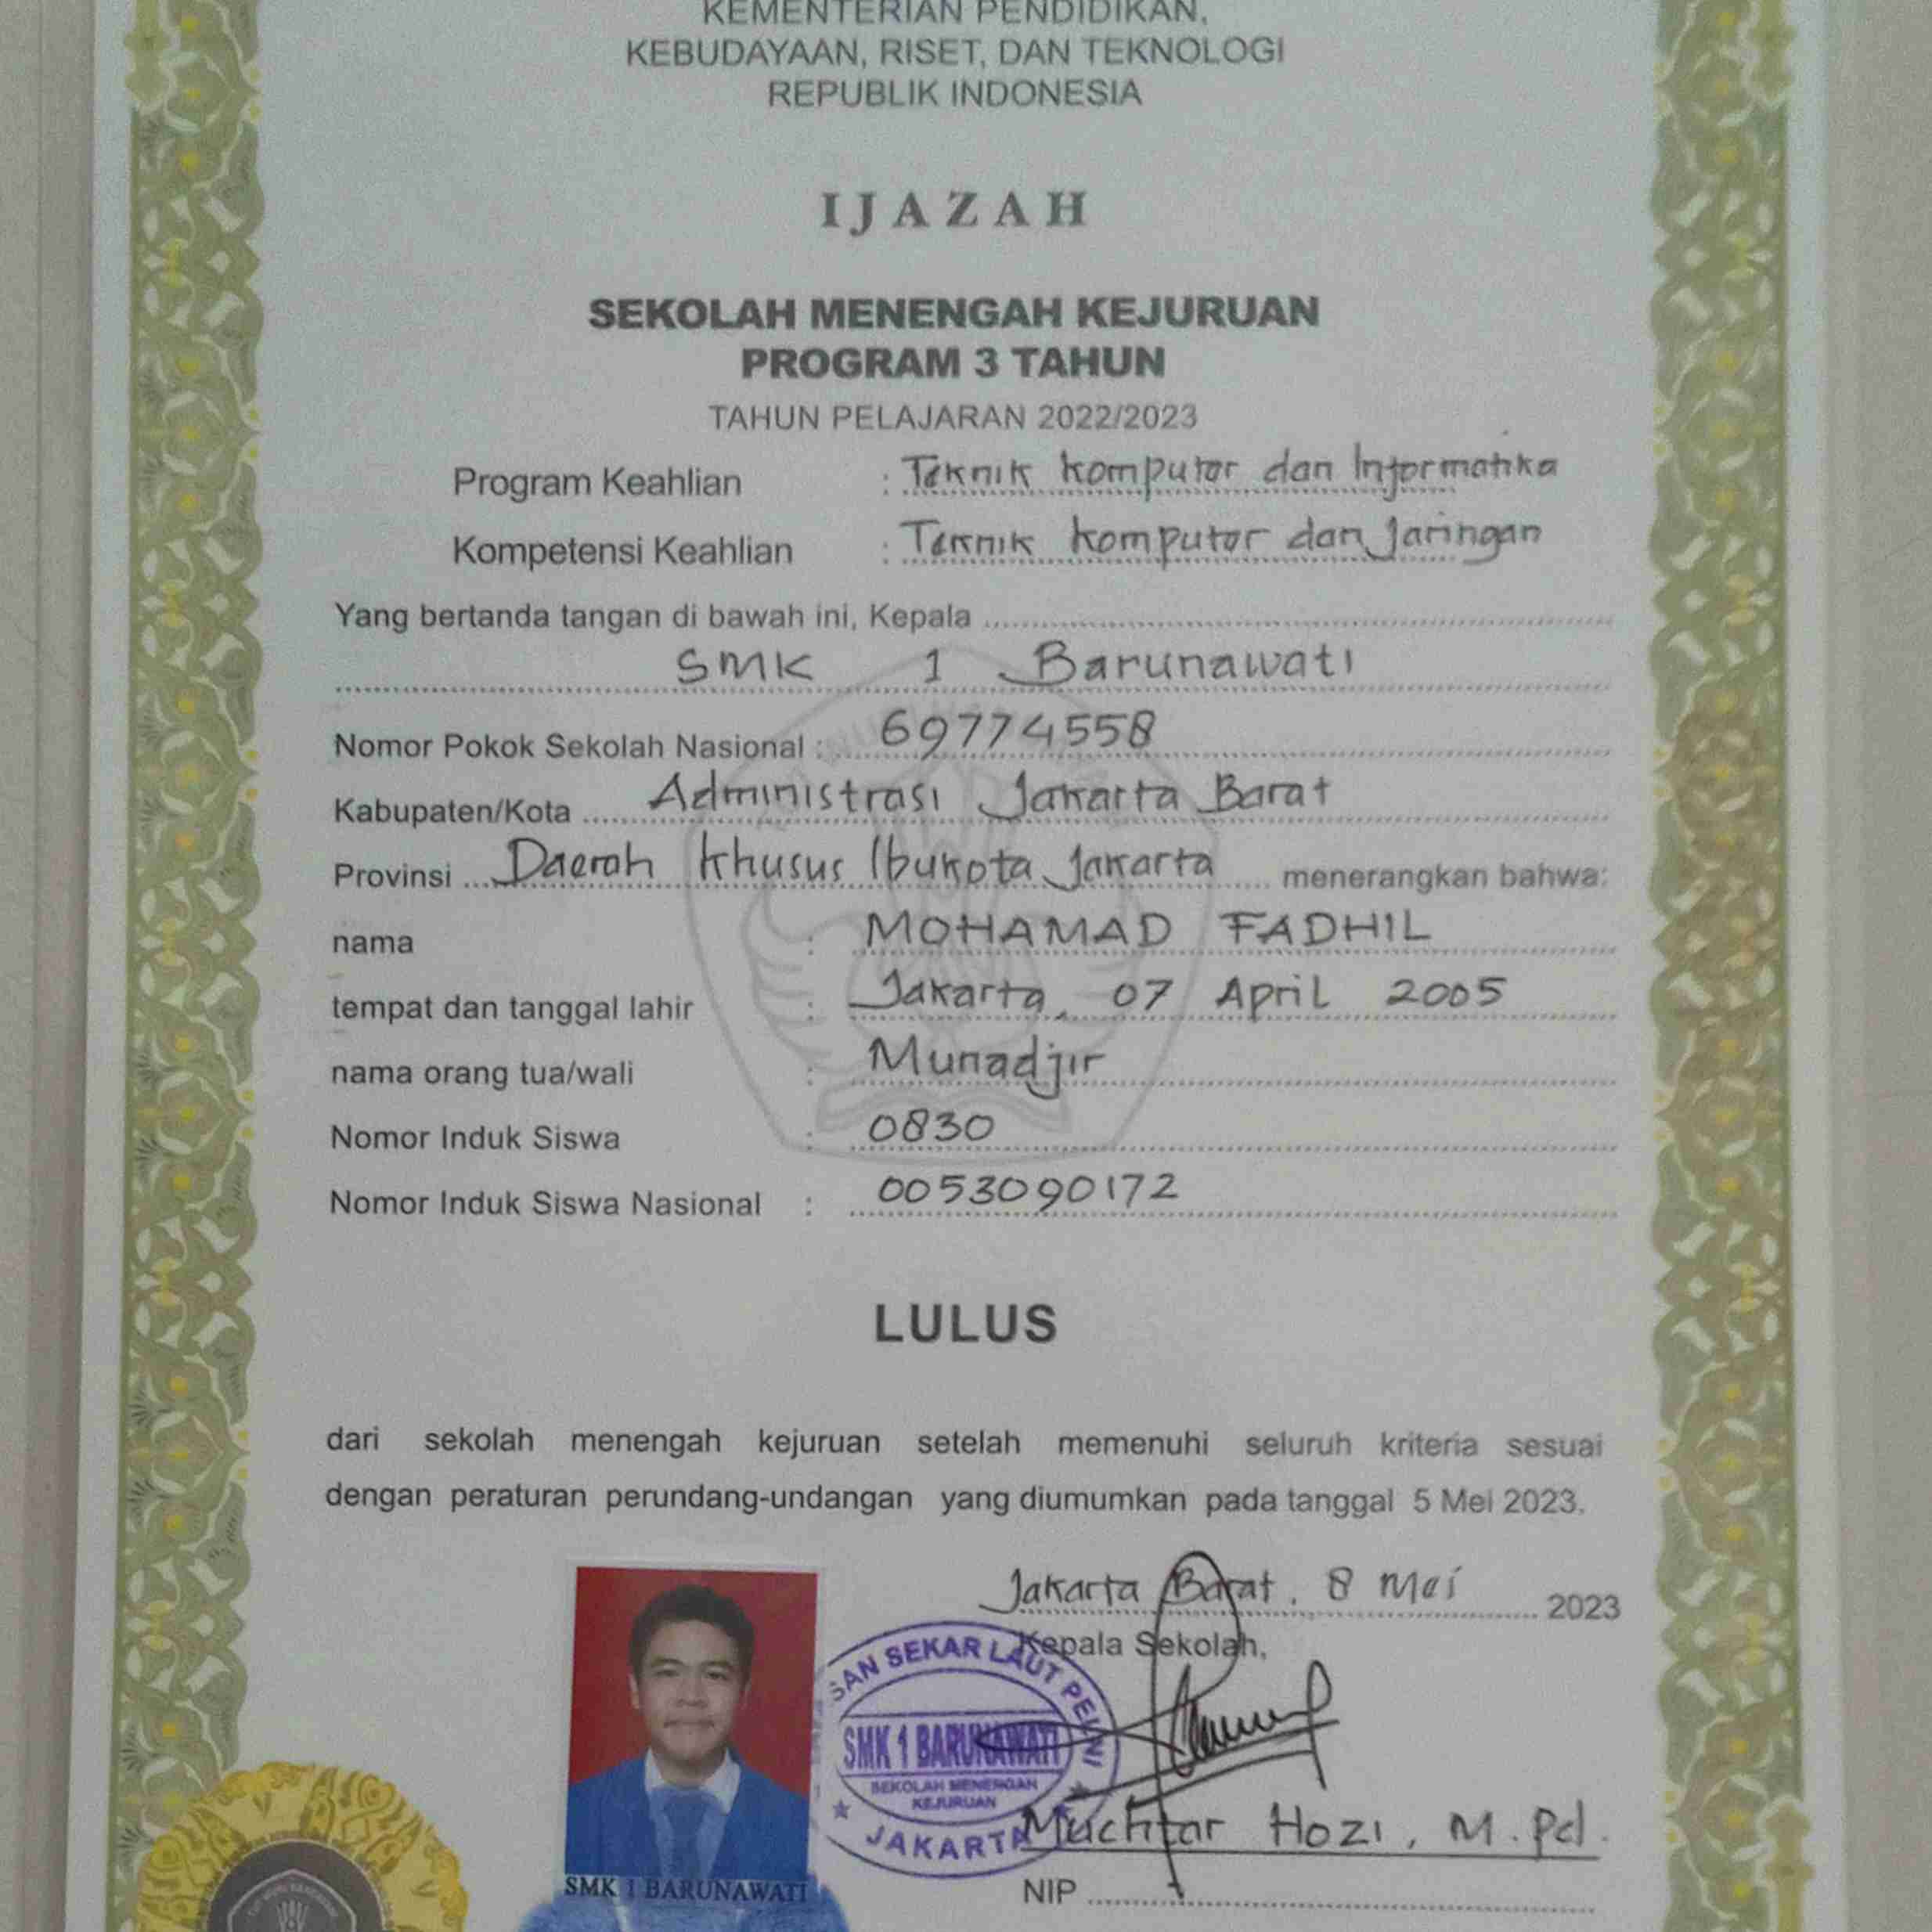 KEMENTERIAN PENDIDIKAN,
KEBUDAYAAN, RISET, DAN TEKNOLOGI
REPUBLIK INDONESIA
IJAZAH
SEKOLAH MENENGAH KEJURUAN
PROGRAM 3 TAHUN
TAHUN PELAJARAN 2022/2023
Program Keahlian : Teknik Komputer dan Informatika
Kompetensi Keahlian : Teknik Komputer dan Jaringan
Yang bertanda tangan di bawah ini, Kepala
SMK 1 Barunawati
Nomor Pokok Sekolah Nasional : 69774558
Kabupaten/Kota Administrasi Jakarta Barat
Provinsi Daerah Khusus Ibukota Jakarta menerangkan bahwa:
nama : MOHAMAD FADHIL
tempat dan tanggal lahir : Jakarta, 07 April 2005
nama orang tua/wali : Munadjir
Nomor Induk Siswa : 0830
Nomor Induk Siswa Nasional : 0053090172
LULUS
dari sekolah menengah kejuruan setelah memenuhi seluruh kriteria sesuai
dengan peraturan perundang-undangan yang diumumkan pada tanggal 5 Mei 2023.
Jakarta Barat, 8 Mei 2023
Kepala Sekolah,
SAN SEKAR LAUT PELNI
SMK 1 BARUNAWATI
SEKOLAH MENENGAH
KEJURUAN
JAKARTA
Muchtar Hozi, M.Pd.
NIP
SMK 1 BARUNAWATI